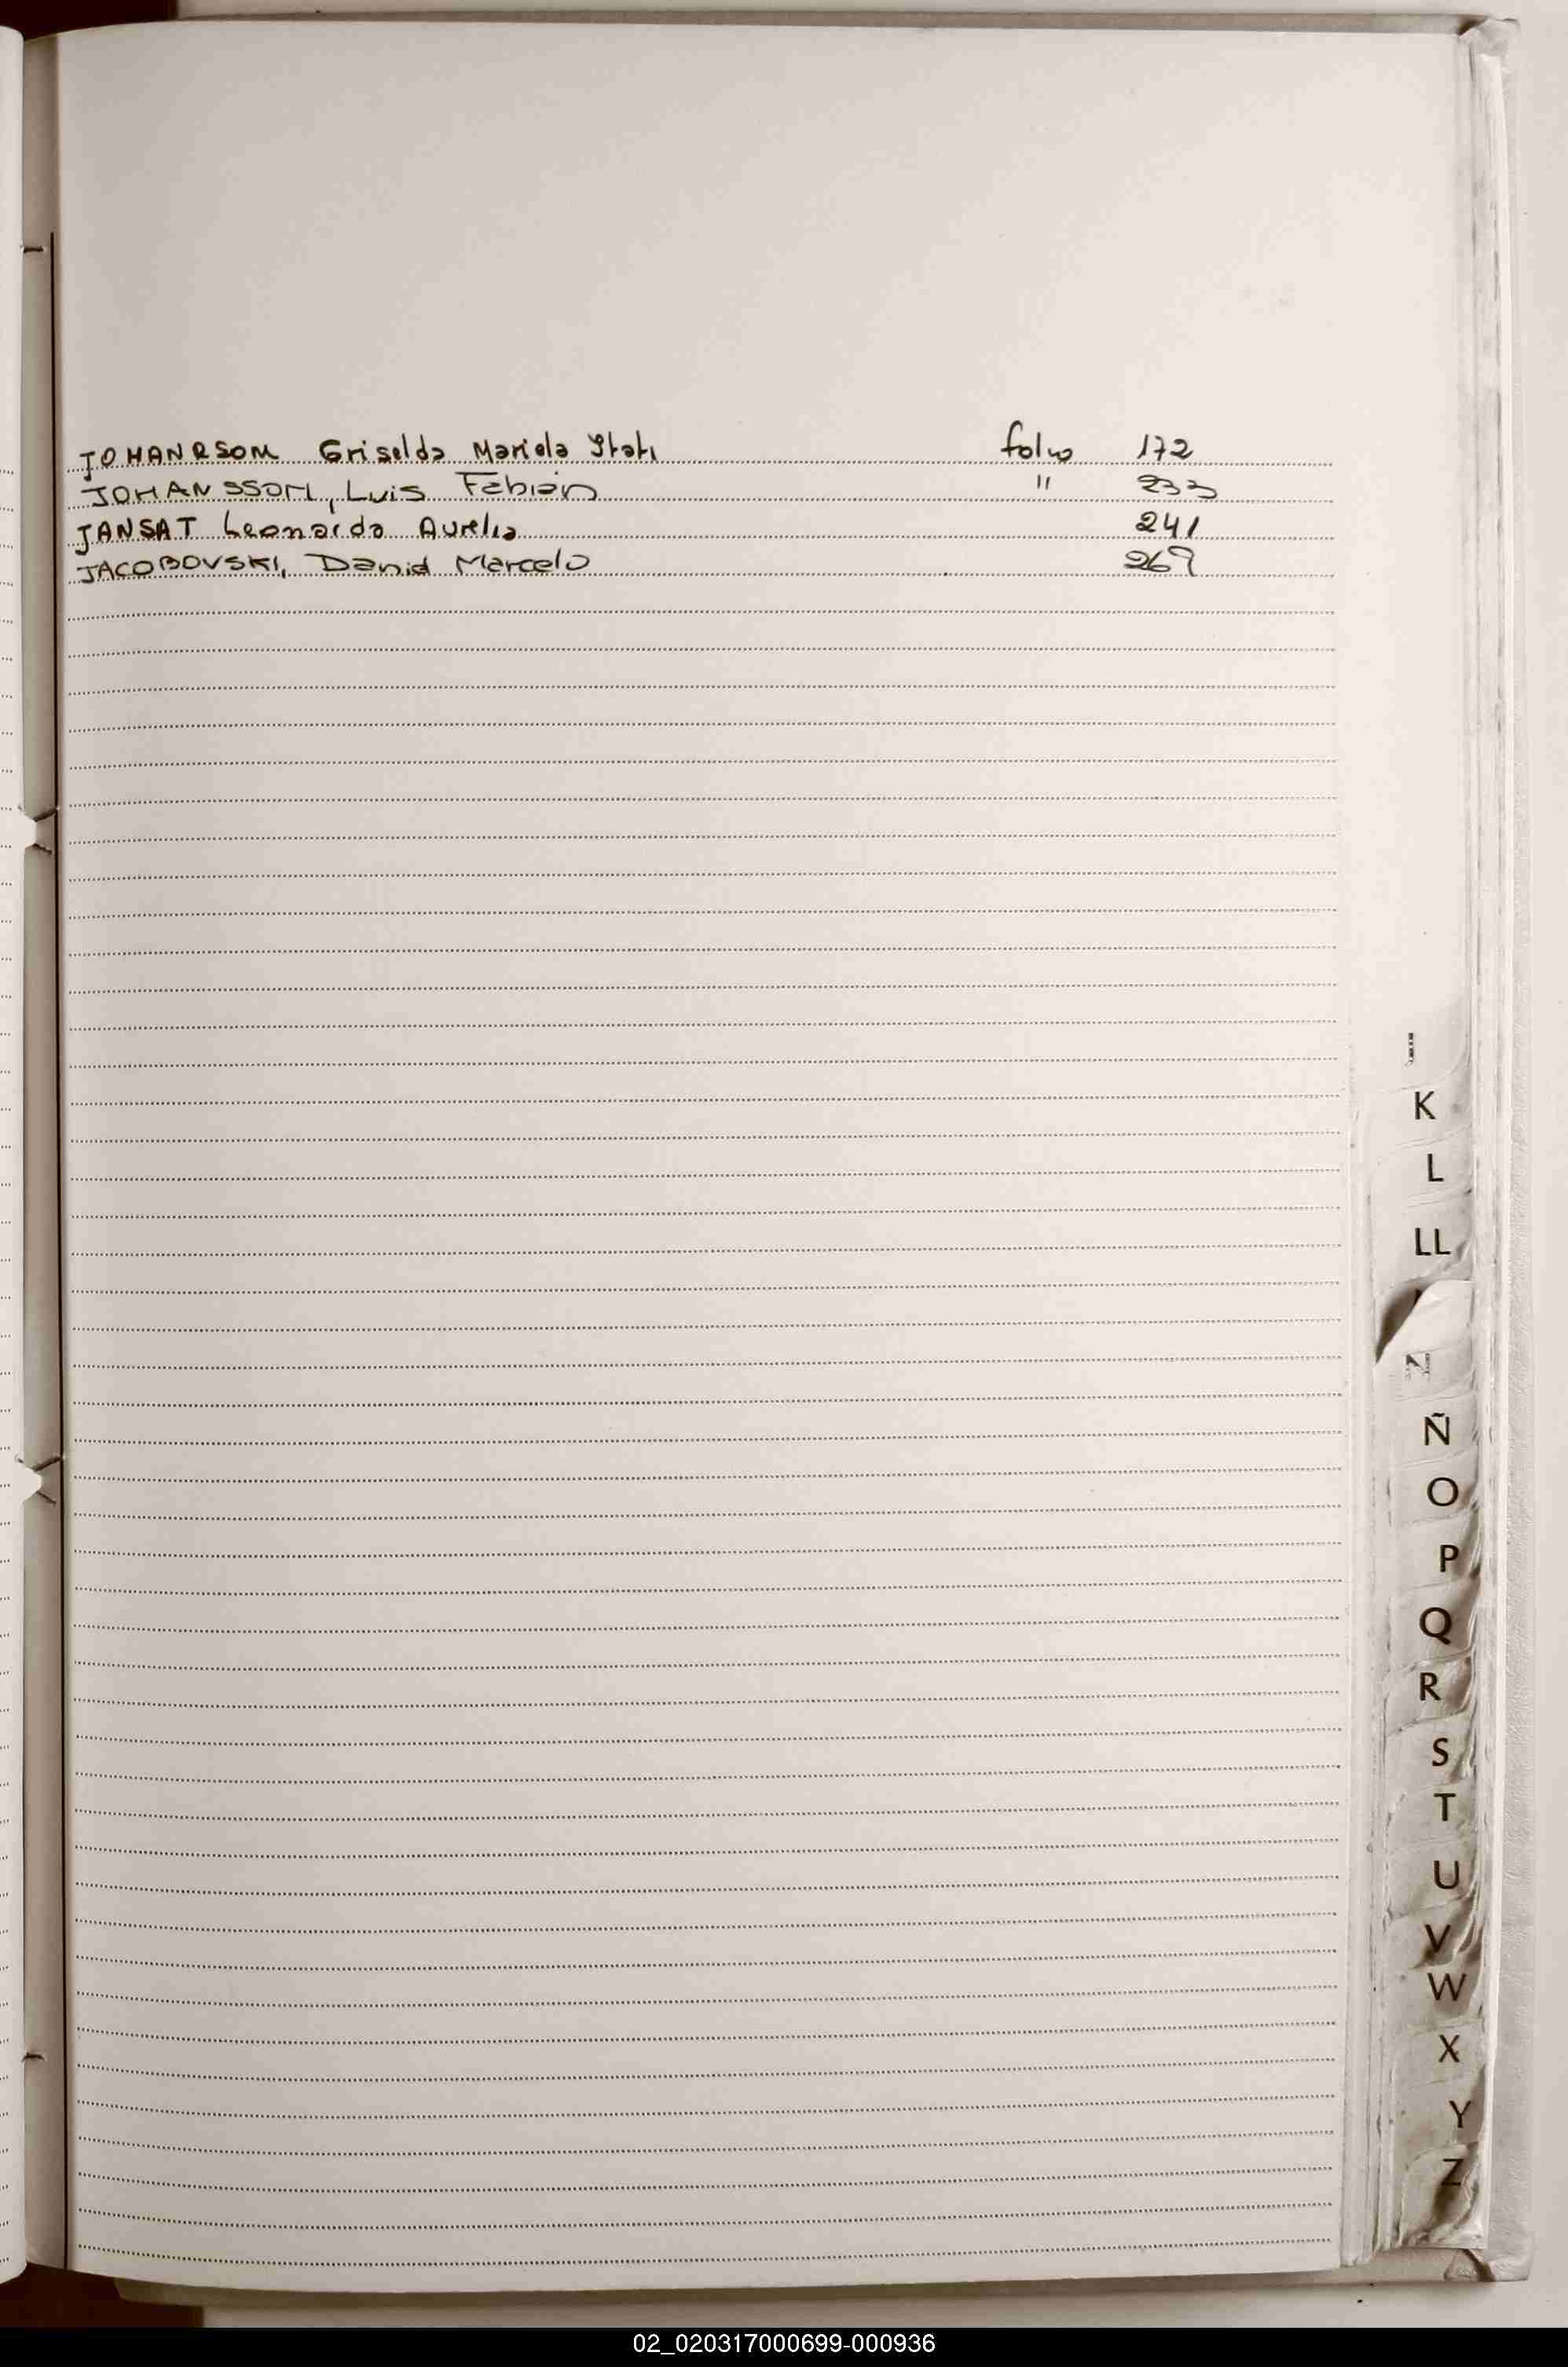 JOHANRSOM Griselda Mariela Itati folio 172
JOHANSSOM, Luis Fabian " 233
JANSAT Leonarda Aurelia 241
JACOBOVSKI, David Marcelo 269
J
K
L
LL
N
Ñ
O
P
Q
R
S
T
U
V
W
X
Y
Z
02_020317000699-000936